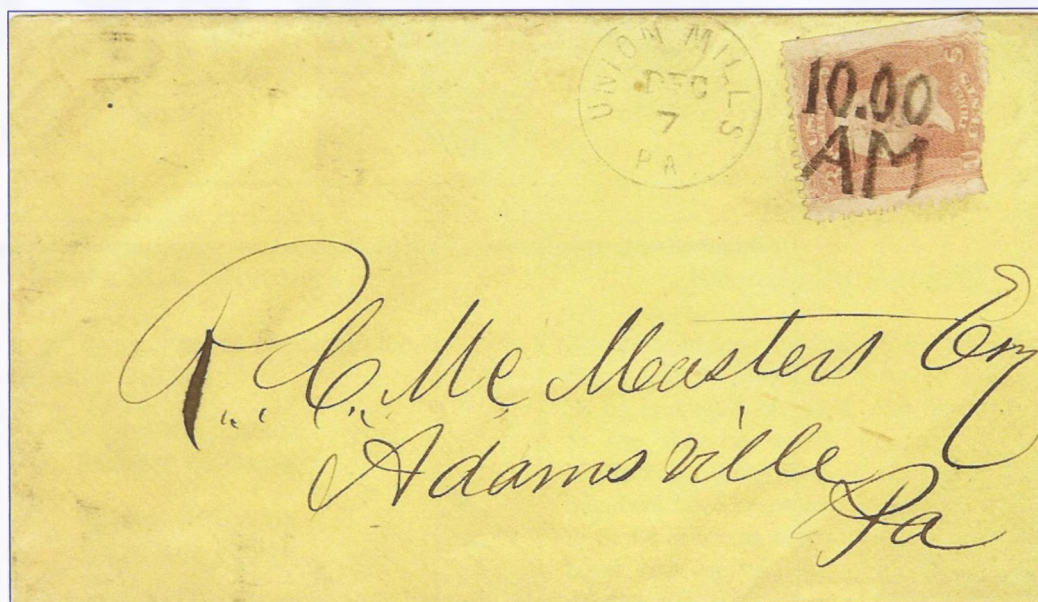 UNION MILLS
DEC
7
PA
10.00
AM
P. C. Mc Masters Esq
Adamsville
Pa